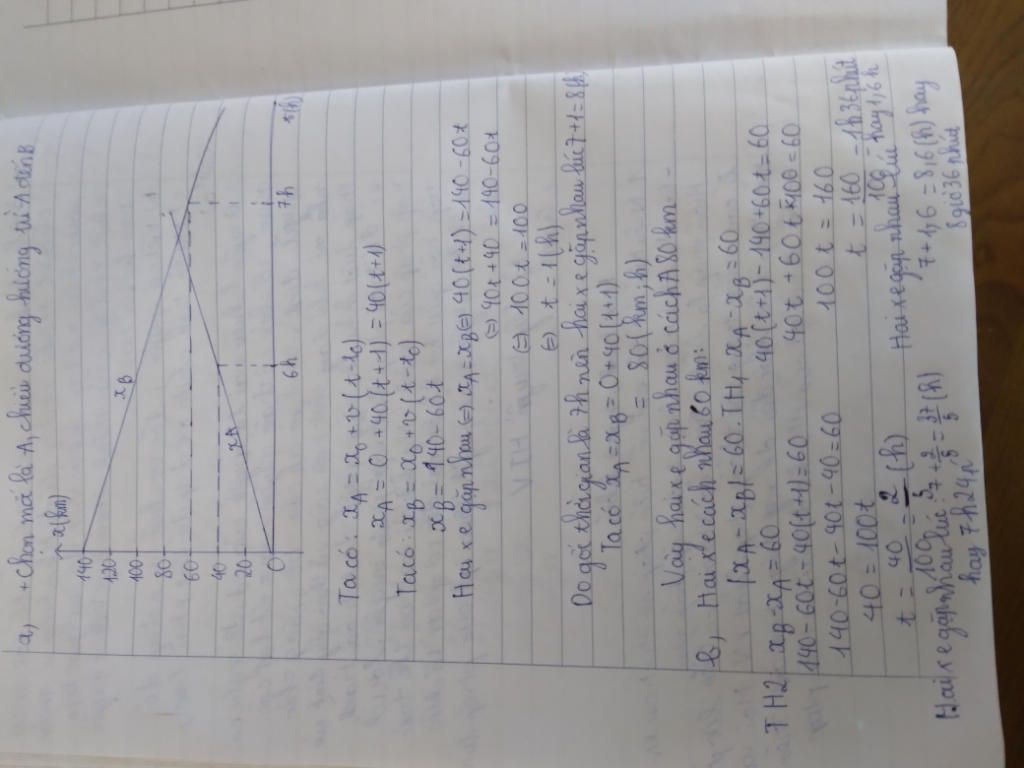 a, + Chọn mố là A, chiều dương hướng từ A đến B
x(km)
140
120
100
80
60
40
20
0
xB
xA
6h
7h
t(h)
Ta có: xA = x0 + v(t-t0)
xA = 0 + 40(t+1) = 40(t+1)
Ta có: xB = x0 + v(t-t0)
xB = 140 - 60t
Hai xe gặp nhau ⇔ xA = xB ⇔ 40(t+1) = 140 - 60t
⇔ 40t + 40 = 140 - 60t
⇔ 100t = 100
⇔ t = 1(h)
Do gốc thời gian là 7h nên hai xe gặp nhau lúc 7+1=8h
Ta có xA = xB = 0 + 40(1+1)
= 80(km/h)
Vậy hai xe gặp nhau ở cách A 80km
b, Hai xe cách nhau 60 km:
|xA - xB| = 60. TH1 xA - xB = 60
40(t+1) - 140 + 60t = 60
40t + 60t - 100 = 60
100t = 160
t = 160/100 = 1h36phút
hay 1,6h
Hai xe gặp nhau lúc
7 + 1,6 = 8,6(h) hay
8 giờ 36 phút
TH2 xB - xA = 60
140 - 60t - 40(t+1) = 60
140 - 60t - 40t - 40 = 60
40 = 100t
t = 40/100 = 2/5 (h)
Hai xe gặp nhau lúc: 7 + 2/5 = 37/5 (h)
hay 7h24p